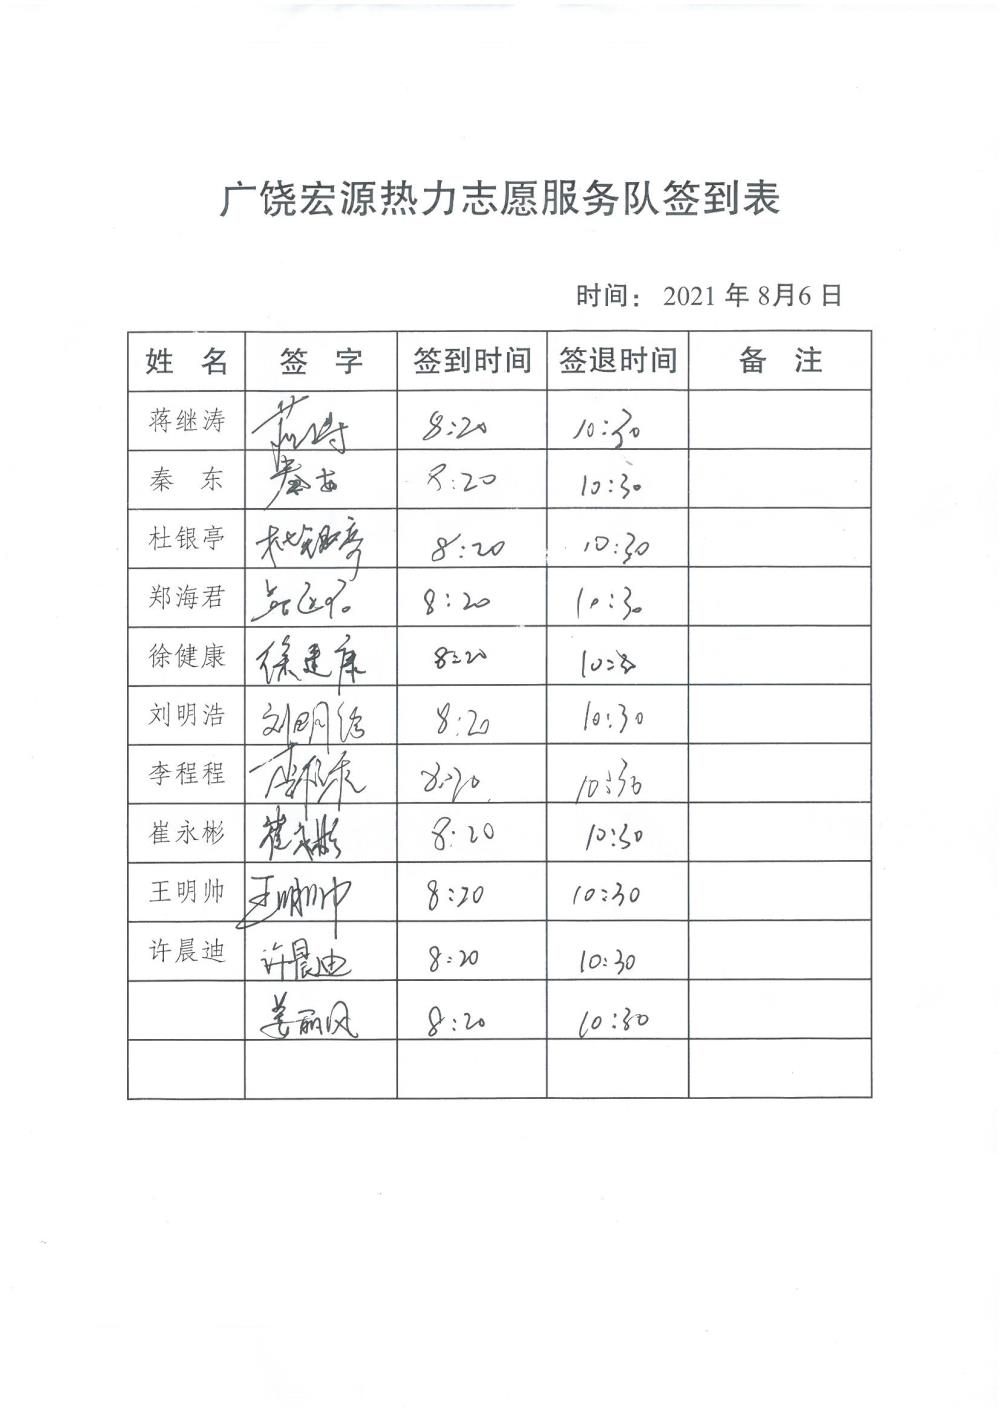 广饶宏源热力志愿服务队签到表
时间： 2021 年 8月6 日
姓 名 签 字 签到时间 签退时间 备 注
蒋继涛 8:20 10:30
秦 东 秦东 8:20 10:30
杜银亭 杜银亭 8:20 10:30
郑海君 8:20 10:30
徐健康 徐建康 8:20 10:30
刘明浩 刘明浩 8:20 10:30
李程程 8:20 10:30
崔永彬 崔永彬 8:20 10:30
王明帅 王明帅 8:20 10:30
许晨迪 许晨迪 8:20 10:30
姜丽凤 8:20 10:30